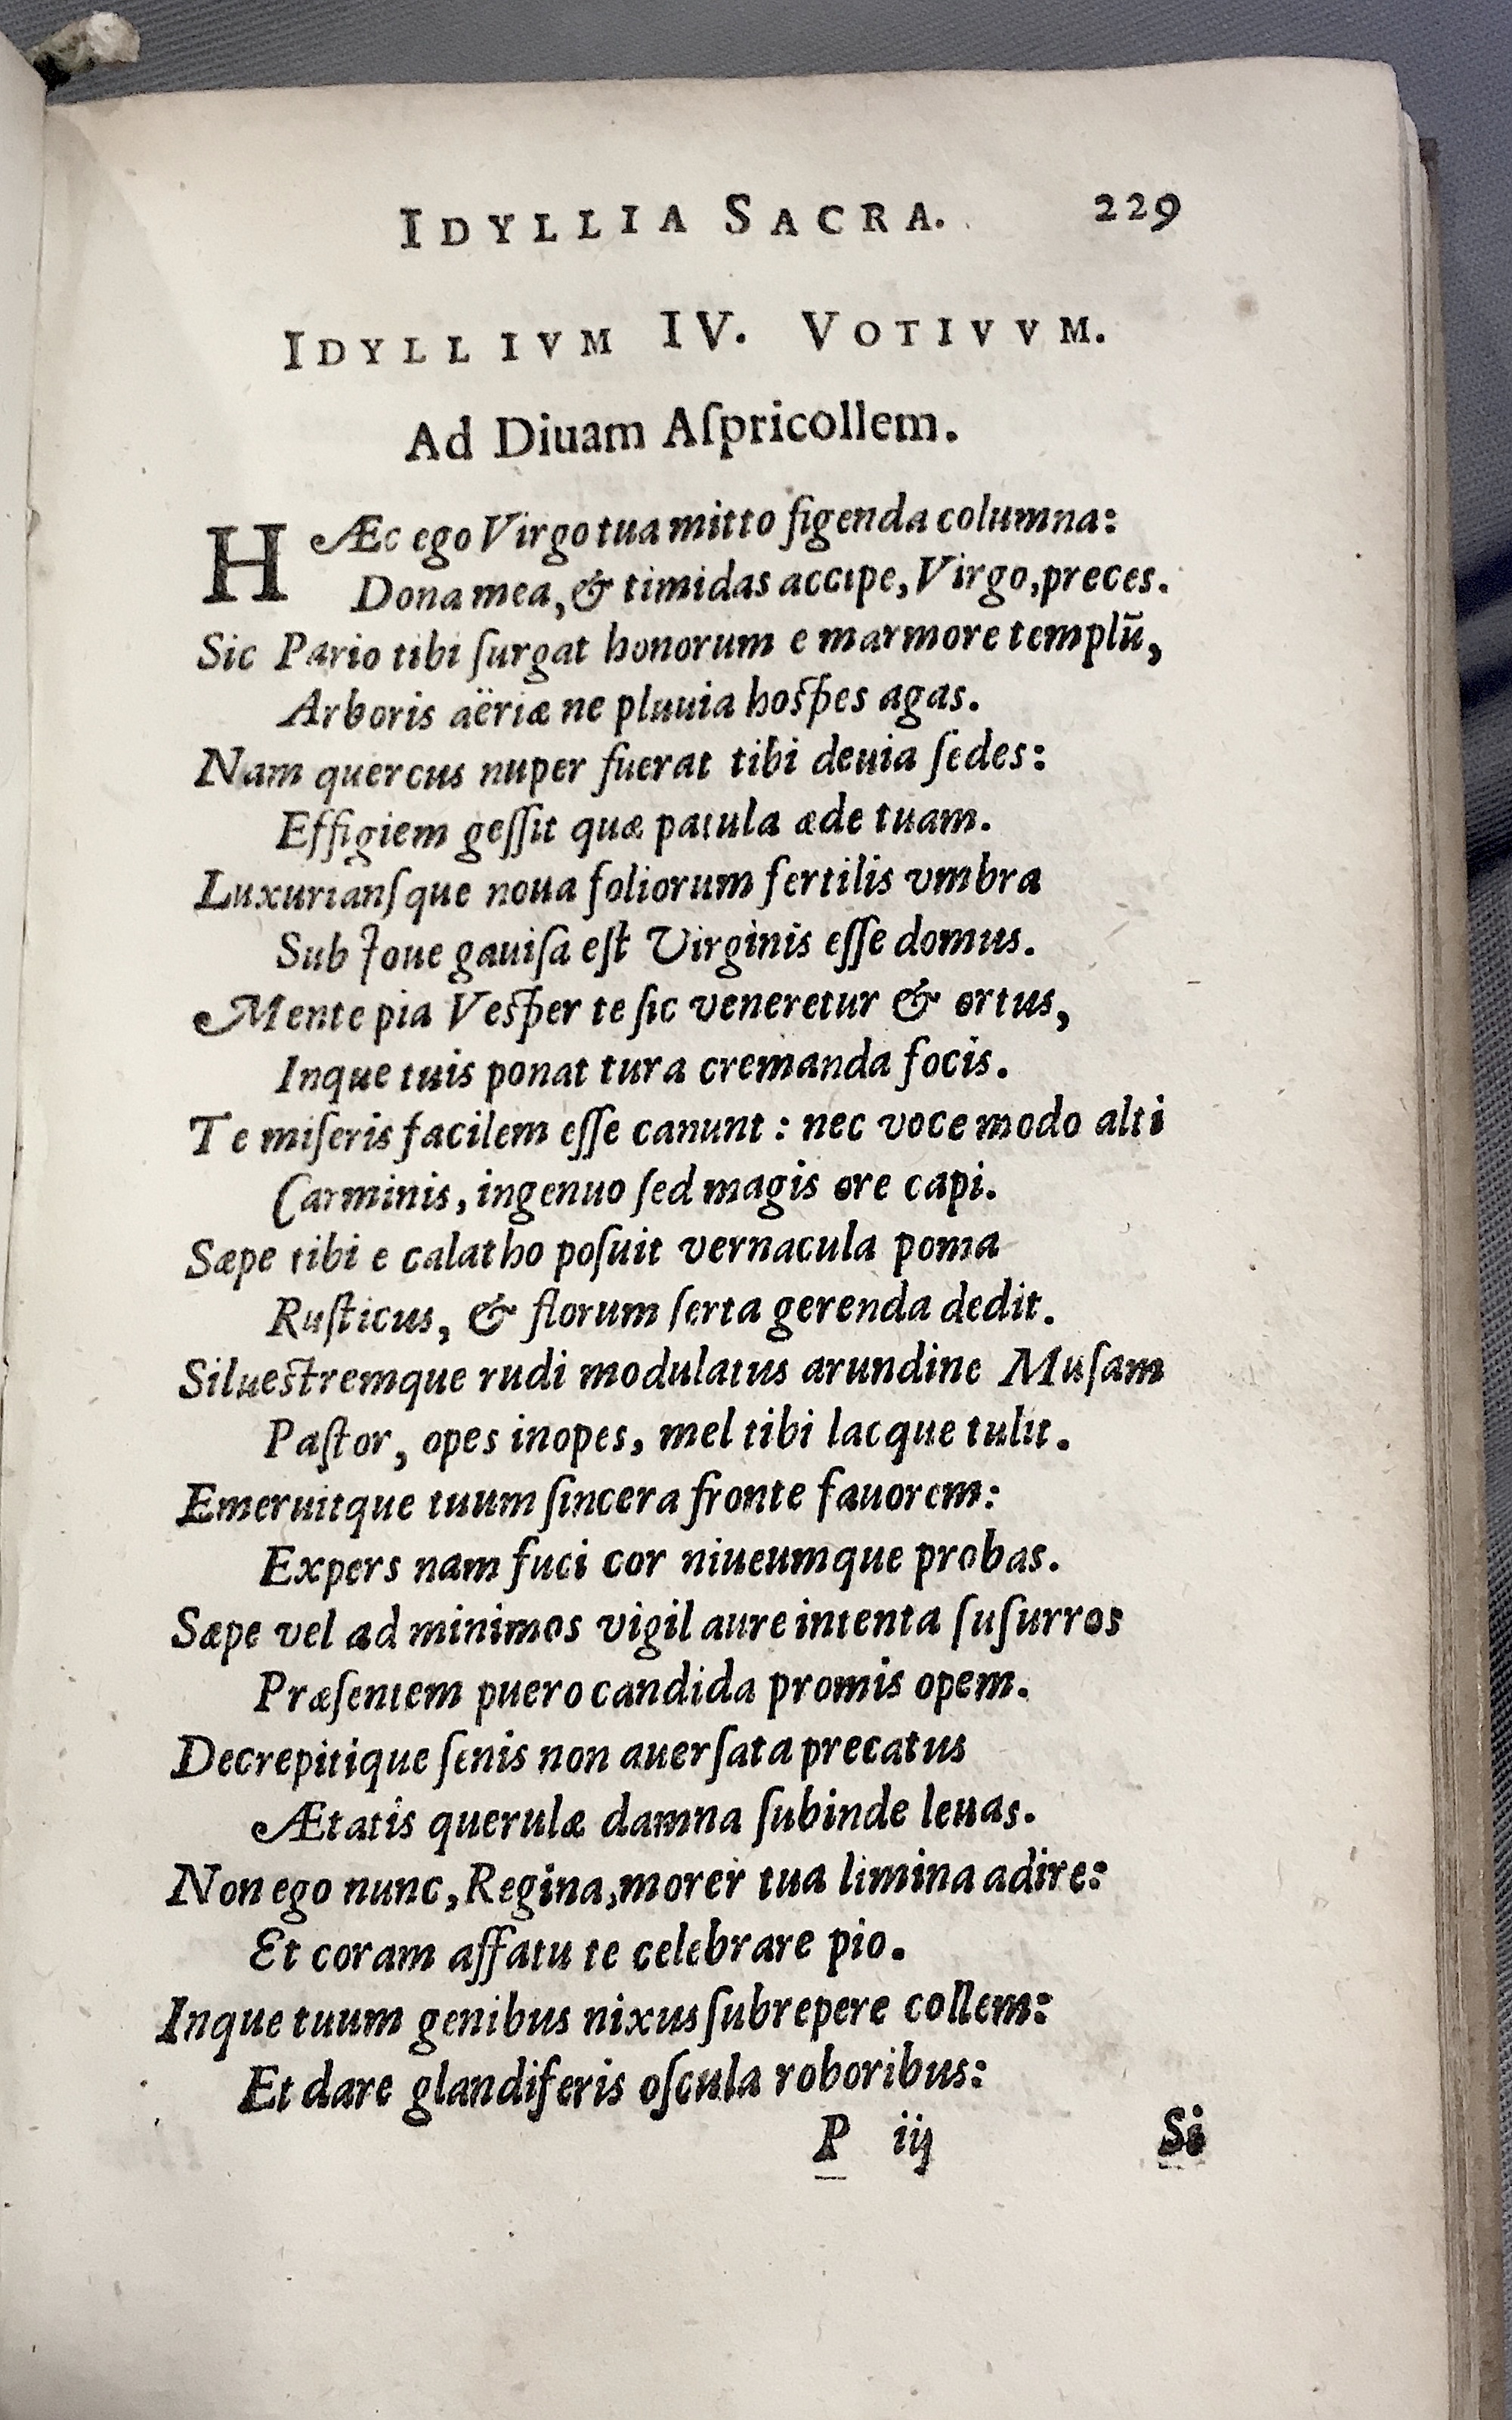 IDYLLIA SACRA. 229
IDYLLIVM IV. VOTIVVM.
Ad Diuam Aſpricollem.
HÆc ego Virgo tua mitto figenda columna:
Dona mea, & timidas accipe, Virgo, preces.
Sic Pario tibi ſurgat honorum e marmore templū,
Arboris aëriæ ne pluuia hoſpes agas.
Nam quercus nuper fuerat tibi deuia ſedes:
Effigiem geſſit quæ patula æde tuam.
Luxurianſque noua foliorum fertilis vmbra
Sub Ioue gauiſa eſt Virginis eſſe domus.
Mente pia Veſper te ſic veneretur & ortus,
Inque tuis ponat tura cremanda focis.
Te miſeris facilem eſſe canunt: nec voce modo alti
Carminis, ingenuo ſed magis ore capi.
Sæpe tibi e calatho poſuit vernacula poma
Ruſticus, & florum ſerta gerenda dedit.
Silueſtremque rudi modulatus arundine Muſam
Paſtor, opes inopes, mel tibi lacque tulit.
Emeruitque tuum ſincera fronte fauorem:
Expers nam fuci cor niueumque probas.
Sæpe vel ad minimos vigil aure intenta ſuſurros
Præſentem puero candida promis opem.
Decrepitique ſenis non auerſata precatus
Ætatis querulæ damna ſubinde leuas.
Non ego nunc, Regina, morer tua limina adire:
Et coram affatu te celebrare pio.
Inque tuum genibus nixus ſubrepere collem:
Et dare glandiferis oſcula roboribus:
P iij Si